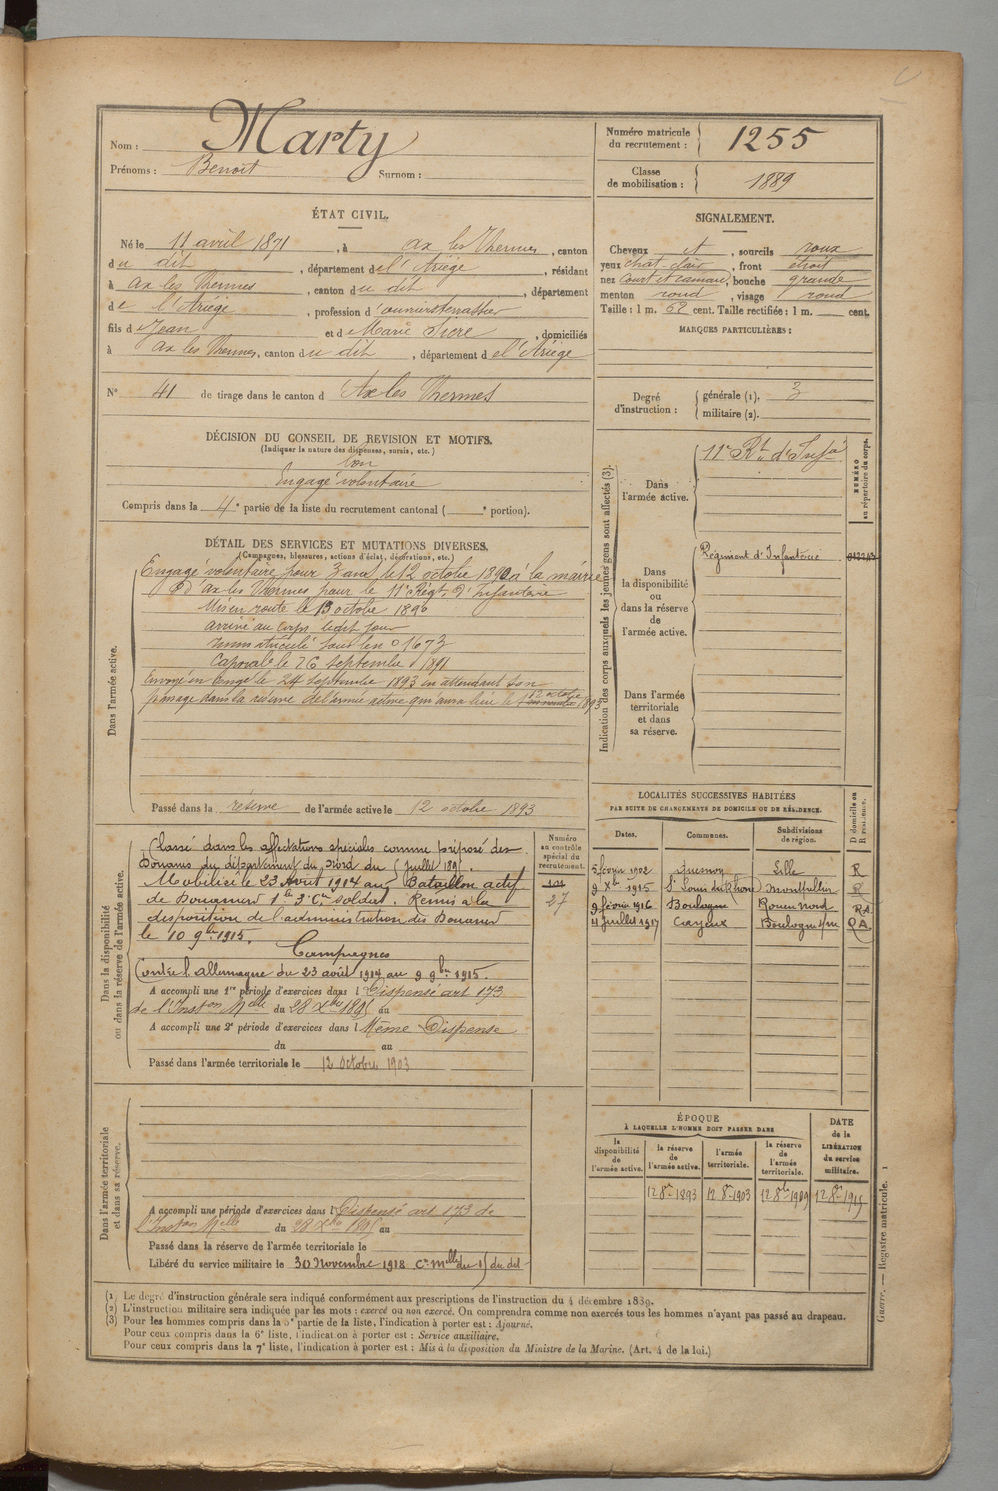 Nom : Marty
Prénoms : Benoit Surnom :
Numéro matricule du recrutement : 1255
Classe de mobilisation : 1889
ÉTAT CIVIL.
Né le 11 avril 1871, à Ax les Thermes, canton
du dit, département de l'Ariège, résidant
à Ax les Thermes, canton du dit, département
de l'Ariège, profession d'ouvrier terrassier
fils d Jean et d Marie Sicre, domiciliés
à Ax les Thermes, canton du dit, département de l'Ariège
N° 41 de tirage dans le canton d Ax les Thermes
SIGNALEMENT.
Cheveux et, sourcils roux
yeux chat. clair, front étroit
nez court et camard, bouche grande
menton rond, visage rond
Taille : 1 m. 62 cent. Taille rectifiée : 1 m. cent.
MARQUES PARTICULIÈRES :
Degré d'instruction : générale (1). 3
militaire (2).
DÉCISION DU CONSEIL DE REVISION ET MOTIFS.
(Indiquer la nature des dispenses, sursis, etc.)
bon
Engagé volontaire
Compris dans la 4e partie de la liste du recrutement cantonal ( e portion).
DÉTAIL DES SERVICES ET MUTATIONS DIVERSES.
(Campagnes, blessures, actions d'éclat, décorations, etc.)
Dans l'armée active.
Engagé volontaire pour 3 ans le 12 octobre 1890 à la mairie
d'ax les Thermes pour le 11e Régt d'Infanterie
Mis en route le 13 octobre 1890
arrivé au corps ledit jour
immatriculé sous le n° 1673
Caporal le 26 septembre 1891
Envoyé en congé le 24 septembre 1893 en attendant son
passage dans la réserve de l'armée active qui aura lieu le 12 octobre 1893
Passé dans la réserve de l'armée active le 12 octobre 1893
Indication des corps auxquels les jeunes gens sont affectés (3).
NUMÉRO au répertoire du corps.
Dans l'armée active.
11e Rt d'Infie
Dans la disponibilité ou dans la réserve de l'armée active.
Régiment d'Infanterie
Dans l'armée territoriale et dans sa réserve.
Dans la disponibilité ou dans la réserve de l'armée active.
Classé dans les affectations spéciales comme préposé des
Douanes du département du Nord du juillet 189
Mobilisé le 23 Août 1914 au Bataillon actif
de Douaniers 1ère 3e Cie soldat. Remis à la
disposition de l'administration des Douanes
le 10 9bre 1915.
Campagnes
Contre l'Allemagne du 23 août 1914 au 9 9bre 1915.
A accompli une 1re période d'exercices dans l Dispensé art 173
de l'Inston Melle du 28 Xbre 1895 au
A accompli une 2e période d'exercices dans l Même Dispense
du au
Passé dans l'armée territoriale le 12 Octobre 1903
Numéro au contrôle spécial du recrutement.
27
LOCALITÉS SUCCESSIVES HABITÉES
PAR SUITE DE CHANGEMENTS DE DOMICILE OU DE RÉSIDENCE.
Dates. Communes. Subdivisions de région. D domicile ou R résidence.
5 février 1902 Quesnoy Lille R
9 Xbre 1915 St Louis du Rhône Montpellier R
9 février 1916 Boulogne Rouen Nord RA
4 Juillet 1917 Cayeux Boulogne s/m RA
ÉPOQUE
À LAQUELLE L'HOMME DOIT PASSER DANS
la disponibilité de l'armée active. la réserve de l'armée active. l'armée territoriale. la réserve de l'armée territoriale. DATE de la LIBÉRATION du service militaire.
12 8bre 1893 12 8bre 1903 12 8bre 1909 12 8bre 1915
Dans l'armée territoriale et dans sa réserve.
A accompli une période d'exercices dans l Dispensé art 173 de
l'Inston Melle du 28 Xbre 1895 au
Passé dans la réserve de l'armée territoriale le
Libéré du service militaire le 30 Novembre 1918 Cre Melle du 15 du dit
(1) Le degré d'instruction générale sera indiqué conformément aux prescriptions de l'instruction du 4 décembre 1889.
(2) L'instruction militaire sera indiquée par les mots : exercé ou non exercé. On comprendra comme non exercés tous les hommes n'ayant pas passé au drapeau.
(3) Pour les hommes compris dans la 5e partie de la liste, l'indication à porter est : Ajourné.
Pour ceux compris dans la 6e liste, l'indication à porter est : Service auxiliaire.
Pour ceux compris dans la 7e liste, l'indication à porter est : Mis à la disposition du Ministre de la Marine. (Art. 4 de la loi.)
Guerre. — Registre matricule. 1